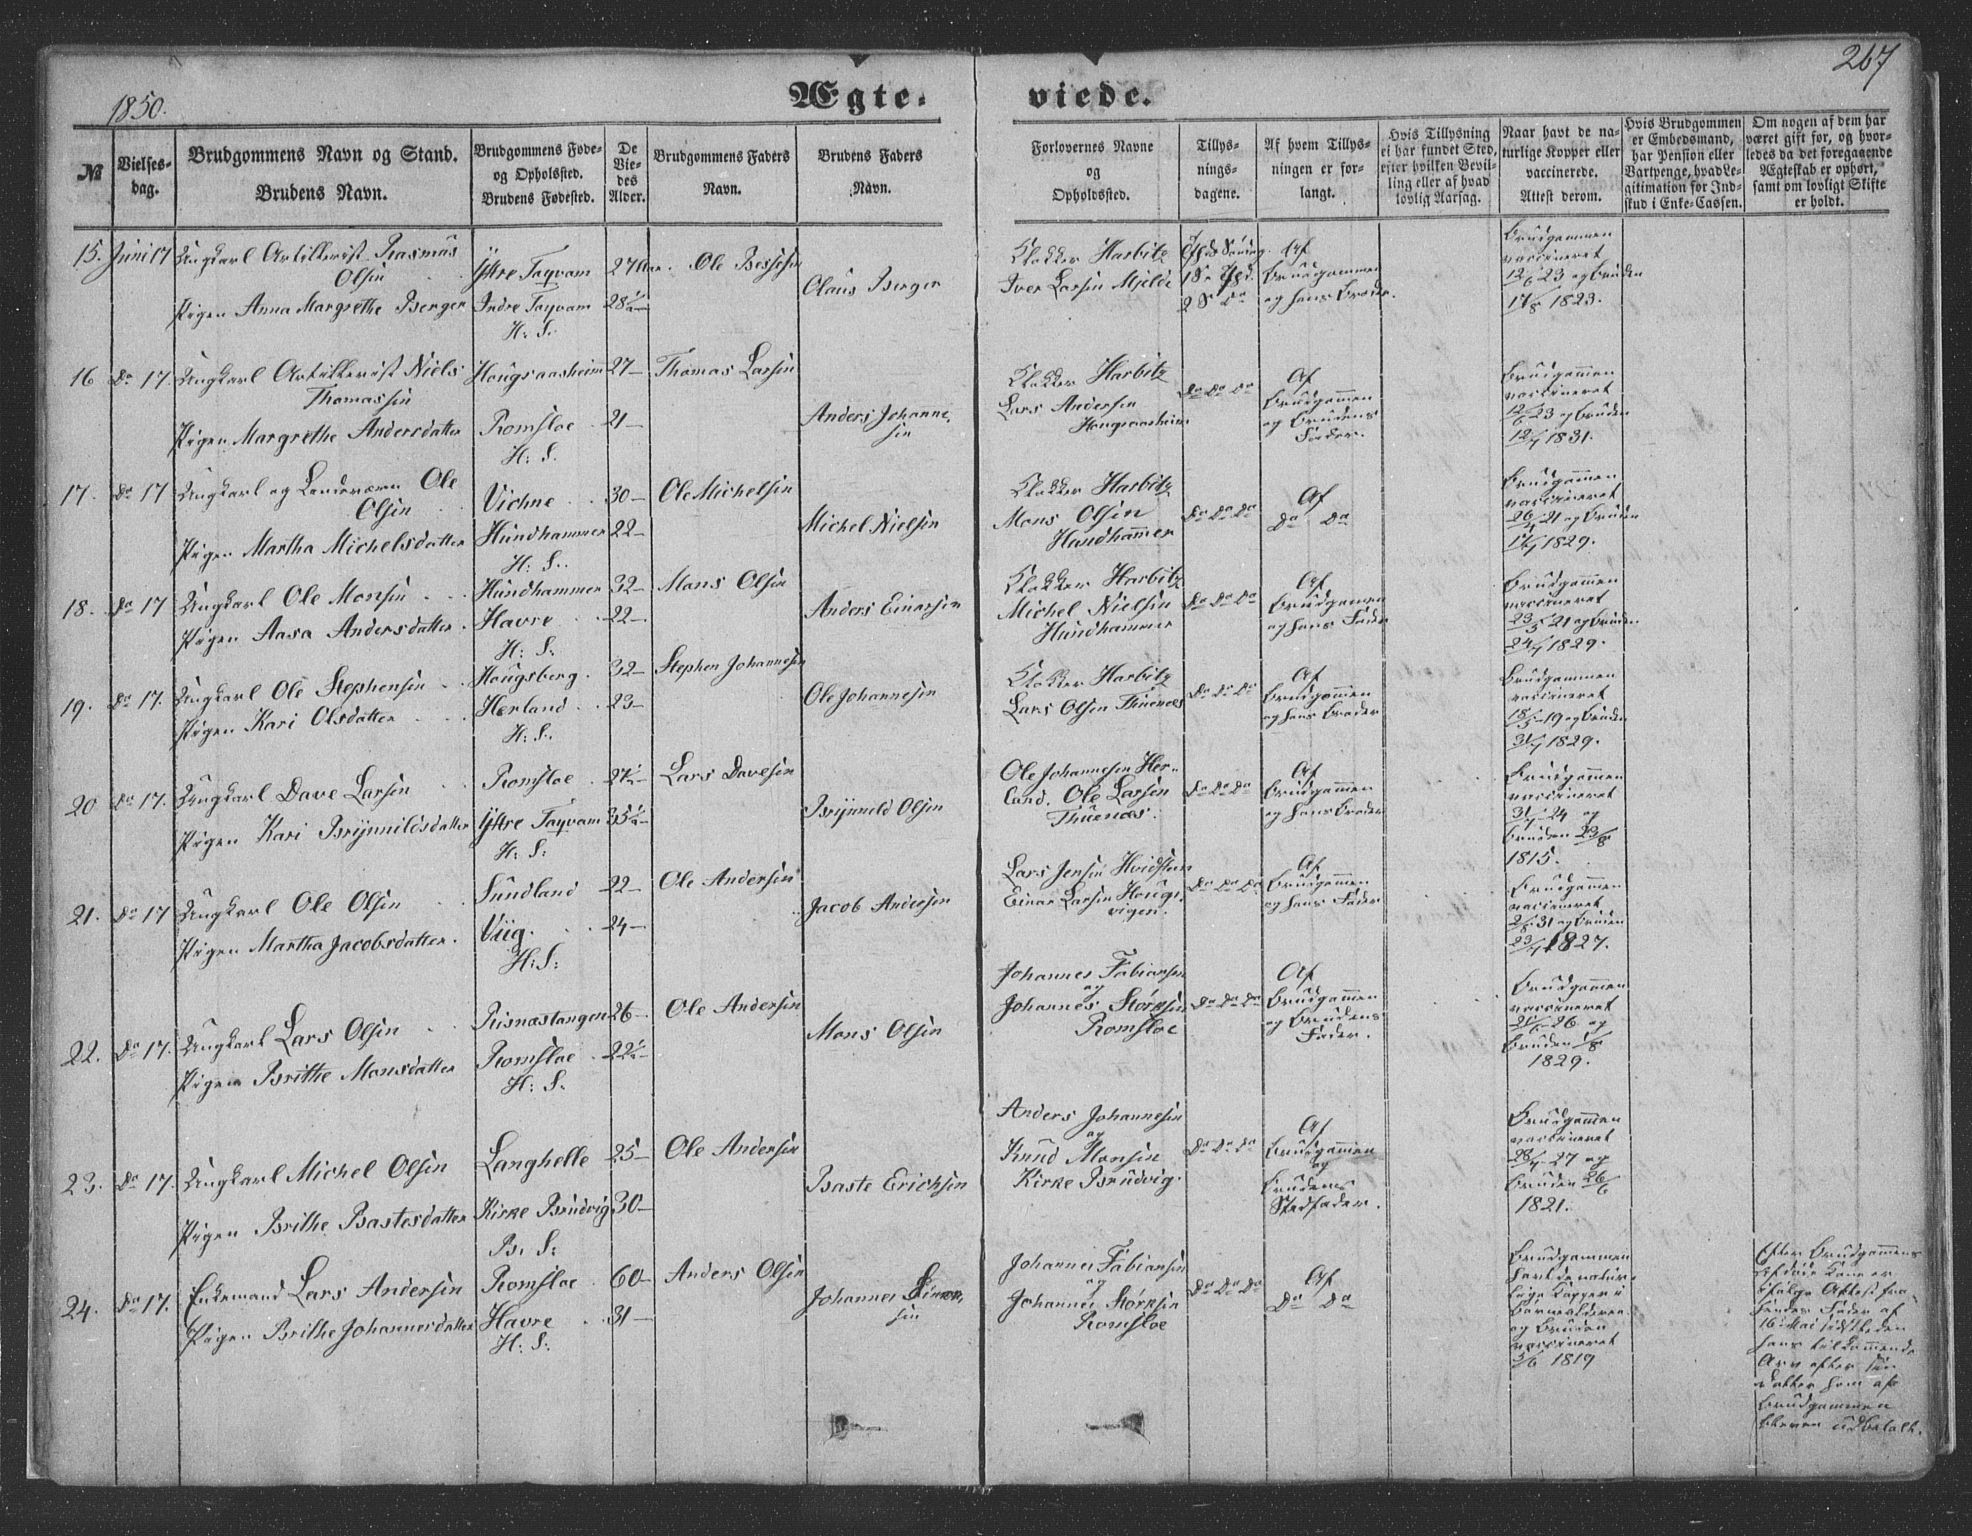 267
1850.
Ægte-
viede.
№
Vielses-
dag.
Brudgommens Navn og Stand.
Brudens Navn.
Brudgommens Føde-
og Opholdsted.
Brudens Fødested.
De
Vie-
des
Alder.
Brudgommens Faders
Navn.
Brudens Faders
Navn.
Forlovernes Navne
og
Opholdssted.
Tillys-
nings-
dagene.
Af hvem Tillys-
ningen er for-
langt.
Hvis Tillysning
ei har fundet Sted,
efter hvilken Bevil-
ling eller af hvad
lovlig Aarsag.
Naar havt de na-
turlige Kopper eller
vaccinerede.
Attest derom.
Hvis Brudgommen
er Embedsmand,
har Pension eller
Vartpenge, hvad Le-
gitimation for Ind-
skud i Enke-Cassen.
Om nogen af dem har
været gift før, og hvor-
ledes da det foregaaende
Ægteskab er ophørt,
samt om lovligt Skifte
er holdt.
15. Juni 17 Ungkarl Artillerist Rasmus
Olsen
Pigen Anna Margrethe Berger
Yttre Taqvam
Indre Taqvam
H: S:
27 Aar
28½
Ole Bessesen
Claus Berger
Klokker Harbitz
Iver Larsen Mjelde
Af
Brudgommen
og hans Broder.
Brudgommen
vaccineret
12/6 23 og Bruden
17/8 1823.
16 Do 17. Ungkarl Artillerist Niels
Thomassen
Pigen Margrethe Andersdatter
Hougsaasheim
Romsloe
H: S.
27
21
Thomas Larsen
Anders Johanne-
sen
Klokker Harbitz
Lars Andersen
Hougsaasheim
Do Do Do
Af
Brudgommen
og Brudens
Fader.
Brudgommen
vaccineret
12/6 23 og Bruden
12/7 1831.
17. Do 17 Ungkarl og Landeværn Ole
Olsen
Pigen Martha Michelsdatter
Vichne
Hundhammer
H: S.
30
22
Ole Michelsen
Michel Nielsen
Klokker Harbitz
Mons Olsen
Hundhammer
Do Do Do
Af
Do Do
Brudgommen
vaccineret
og Bruden
1829.
18. Do 17 Ungkarl Ole Monsen
Pigen Aasa Andersdatter
Hundhammer
Havre
H: S:
32
22
Mons Olsen
Anders Einarsen
Klokker Harbitz
Michel Nielsen
Hundhammer
Do Do Do
Af
Brudgommen
og hans Fader
Brudgommen
vaccineret
23/5 21 og Bruden
24/7 1829.
19. Do 17. Ungkarl Ole Stephensen
Pigen Kari Olsdatter
Hougsberg
Herland
H: S.
32
23
Stephen Johannesen
Ole Johannesen
Klokker Harbitz
Lars Olsen Thuenæs
Do Do Do
Af
Brudgommen
og hans Broder
Brudgommen
vaccineret
18/5 19 og Bruden
31/7 1829.
20 Do 17. Ungkarl Dave Larsen
Pigen Kari Brynnildsdatter
Romsloe
Yttre Taqvam
H: S:
27½
35½
Lars Davesen
Brynnild Olsen
Ole Johannesen Her-
land. Ole Larsen
Thuenæs.
Do Do Do
Af
Brudgommen
og hans Broder
Brudgommen
vaccineret
31/7 24 og
Bruden 23/8
1815.
21. Do 17 Ungkarl Ole Olsen
Pigen Martha Jacobsdatter.
Sundland
Viig.
H: S:
22
24
Ole Andersen
Jacob Andersen
Lars Jensen Hvidsteen
Einar Larsen Houge-
vigen.
Do Do Do
Af
Brudgommen
og hans Fader
Brudgommen
vaccineret
2/8 31 og Bruden
23/7 1827.
22. Do 17. Ungkarl Lars Olsen
Pigen Brithe Monsdatter
Risnæstangen
Romsloe
H: S.
26
22½
Ole Andersen
Mons Olsen
Johannes Fabiansen
og
Johannes Størksen
Romsloe
Do Do Do
Af
Brudgommen
og Brudens
Fader.
Brudgommen
vaccineret
26 og
Bruden
1829.
23. Do 17. Ungkarl Michel Olsen
Pigen Brithe Bastesdatter
Langhelle
Kirke Brudvig
B. S:
25
30
Ole Andersen
Baste Erichsen
Anders Johannesen
og
Knud Monsen
Kirke Brudvig.
Do Do Do
Af
Brudgommen
og
Brudens
Stedfader.
Brudgommen
vaccineret
28/7 27 og
Bruden 26/6
1821.
24. Do 17. Enkemand Lars Andersen
Pigen Brithe Johannesdatter
Romsloe
Havre
H: S:
60
31
Anders Olsen
Johannes Simon-
sen
Johannes Fabiansen
og
Johannes Størksen
Romsloe
Do Do Do
Af
Do Do
Brudgommen
havt de natur-
lige Kopper i
Barnealderen
og Bruden
vaccineret
5/6 1819
Efter Brudgommens
afdøde Kone er
ifølge Attest fra
hendes Fader af
16 Mai sidstleden
hans tilkommende
Arv efter sin
Datter ham af
Brudgommen
bleven udbetalt.